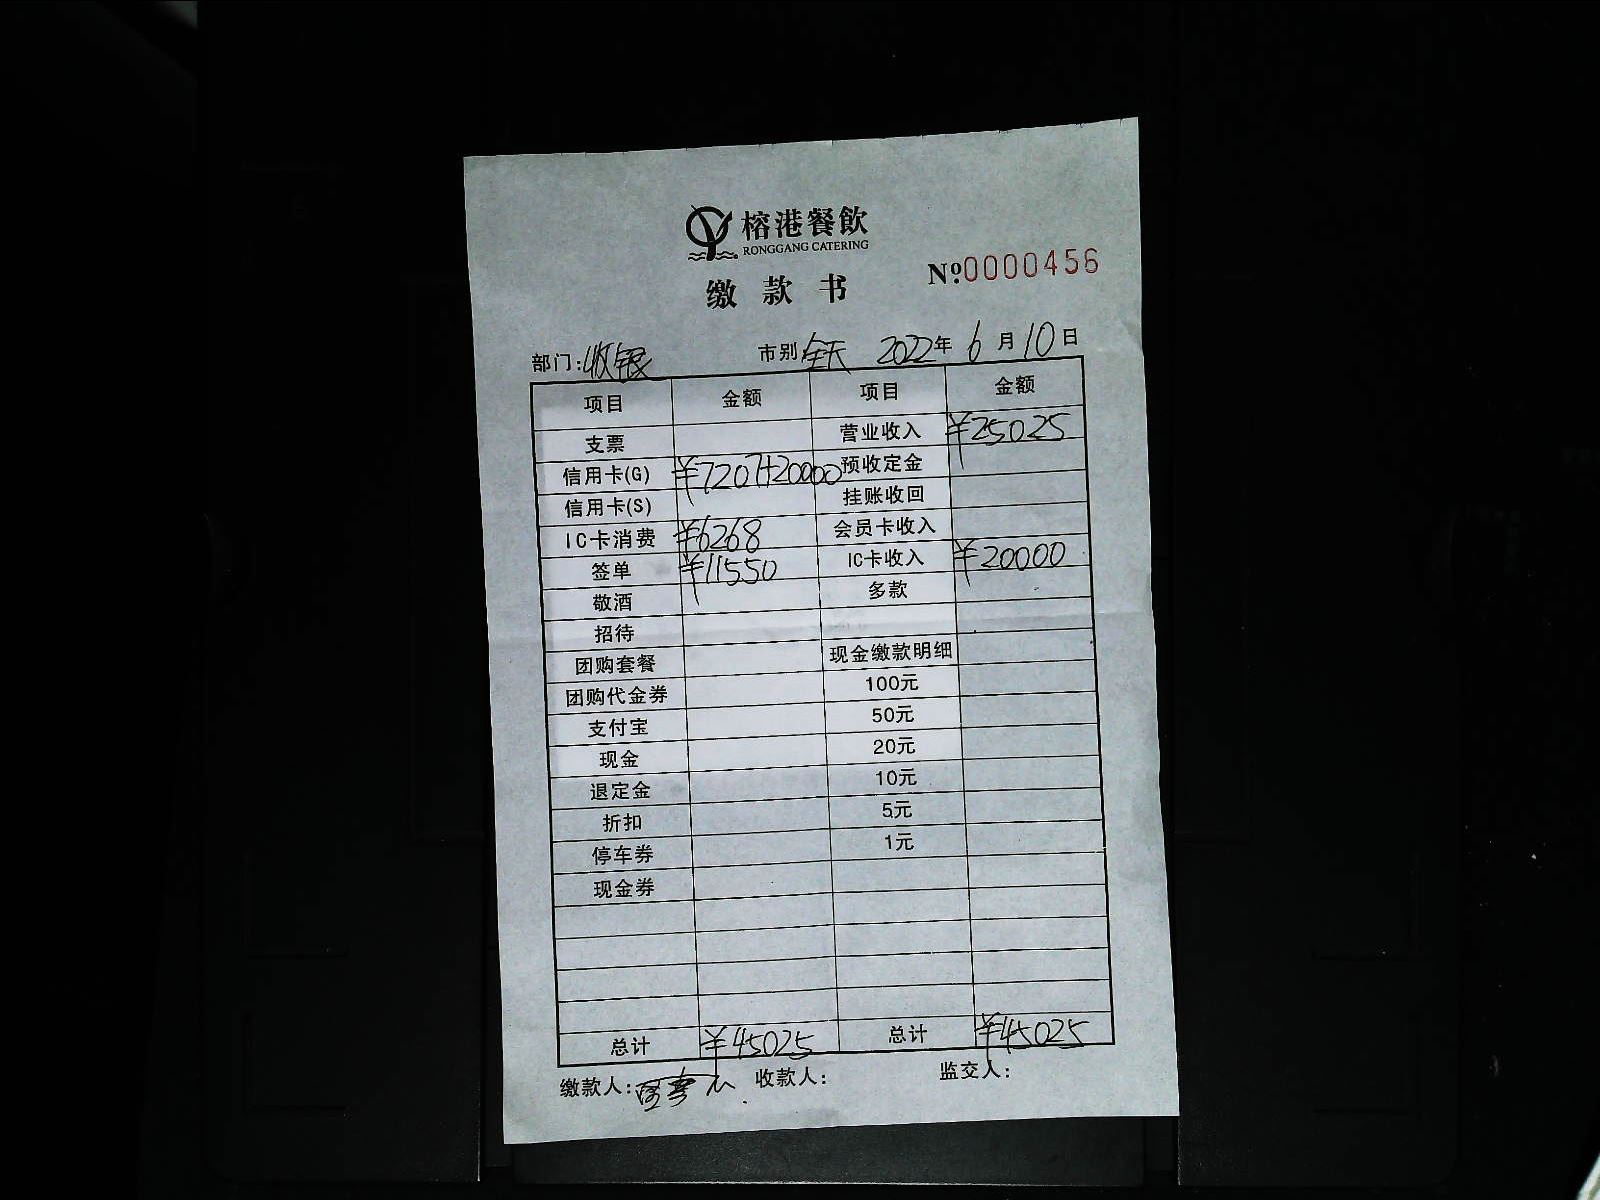 榕港餐飲
RONGGANG CATERING
缴款书 №0000456
部门:收银 市别 全天 2022年6月10日
项目 金额 项目 金额
支票 营业收入 ¥25025
信用卡(G) ¥7207+20000 预收定金
信用卡(S) 挂账收回
IC卡消费 ¥6268 会员卡收入
签单 ¥11550 IC卡收入 ¥20000
敬酒 多款
招待
团购套餐 现金缴款明细
团购代金券 100元
支付宝 50元
现金 20元
退定金 10元
折扣 5元
停车券 1元
现金券
总计 ¥45025 总计 ¥45025
缴款人: 收款人: 监交人: